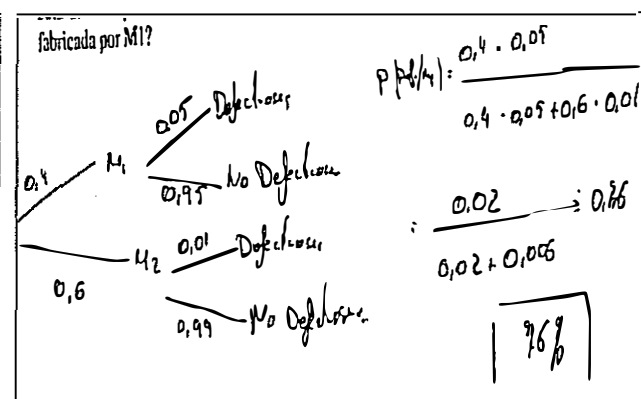 fabricada por M1?
0,4
M₁
0,05
Defectuosas
0,95
No Defectuosas
0,6
M2
0,01
Defectuosas
0,99
No Defectuosas
0,4 · 0,05
0,4 · 0,05 + 0,6 · 0,01
0,02
0,02 + 0,006